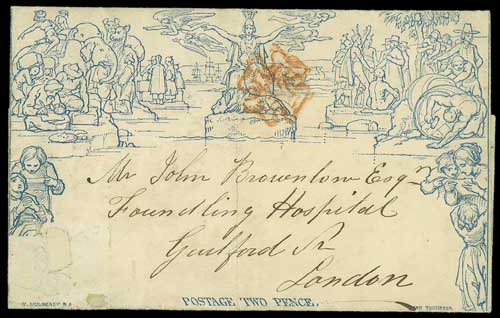 Mr John Brownlow Esqr
Foundling Hospital
Guilford St
London
POSTAGE TWO PENCE.
W. MULREADY R.A.
JOHN THOMPSON